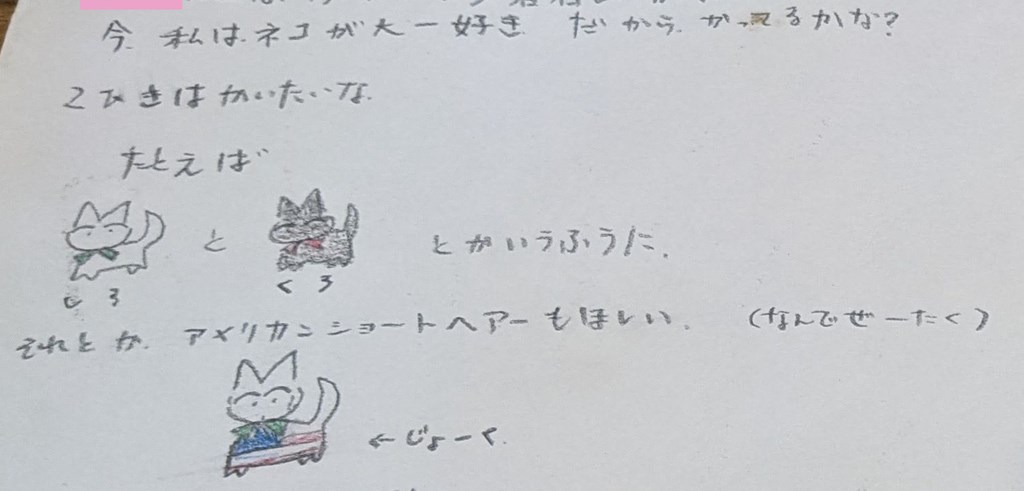 今、私は、ネコが大一好き だから、かってるかな?
2ひきはかいたいな。
たとえば
と とかいうふうに。
しろ くろ
それとか、アメリカンショートヘアーもほしい。 (なんでぜーたく)
←じょーく。